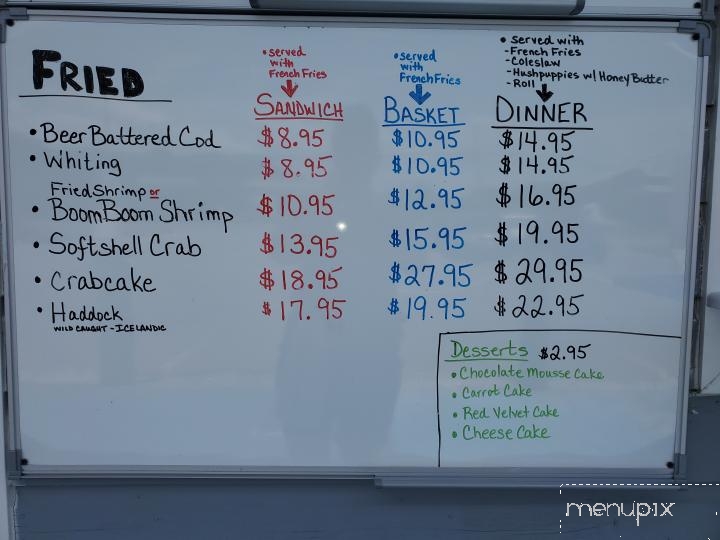 FRIED
• served
with
French Fries
SANDWICH
• served
with
French Fries
BASKET
• served with
- French Fries
- Coleslaw
- Hushpuppies w/ Honey Butter
- Roll
DINNER
• Beer Battered Cod $8.95 $10.95 $14.95
• Whiting $8.95 $10.95 $14.95
Fried Shrimp or
• Boom Boom Shrimp $10.95 $12.95 $16.95
• Softshell Crab $13.95 $15.95 $19.95
• Crabcake $18.95 $27.95 $29.95
• Haddock $17.95 $19.95 $22.95
WILD CAUGHT - ICELANDIC
Desserts $2.95
• Chocolate Mousse Cake
• Carrot Cake
• Red Velvet Cake
• Cheese Cake
menupix